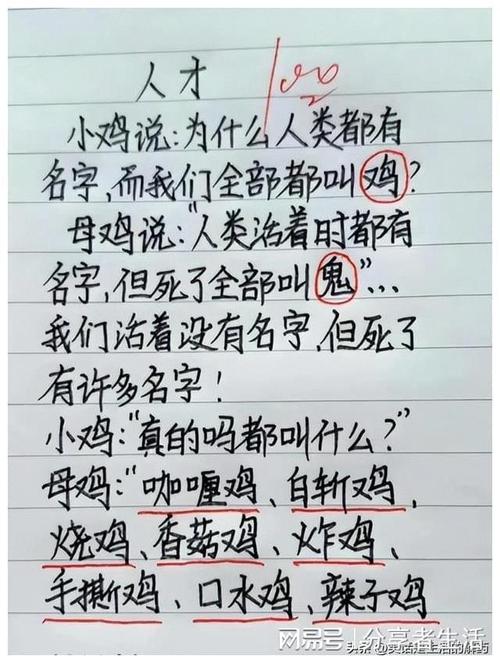 人才 100
小鸡说:为什么人类都有
名字,而我们全部都叫鸡?
母鸡说:"人类活着时都有
名字,但死了全部叫鬼"...
我们活着没有名字,但死了
有许多名字!
小鸡:"真的吗都叫什么?"
母鸡:"咖喱鸡、白斩鸡、
烧鸡、香菇鸡、炸鸡、
手撕鸡、口水鸡、辣子鸡
网易号 / 分享老生活